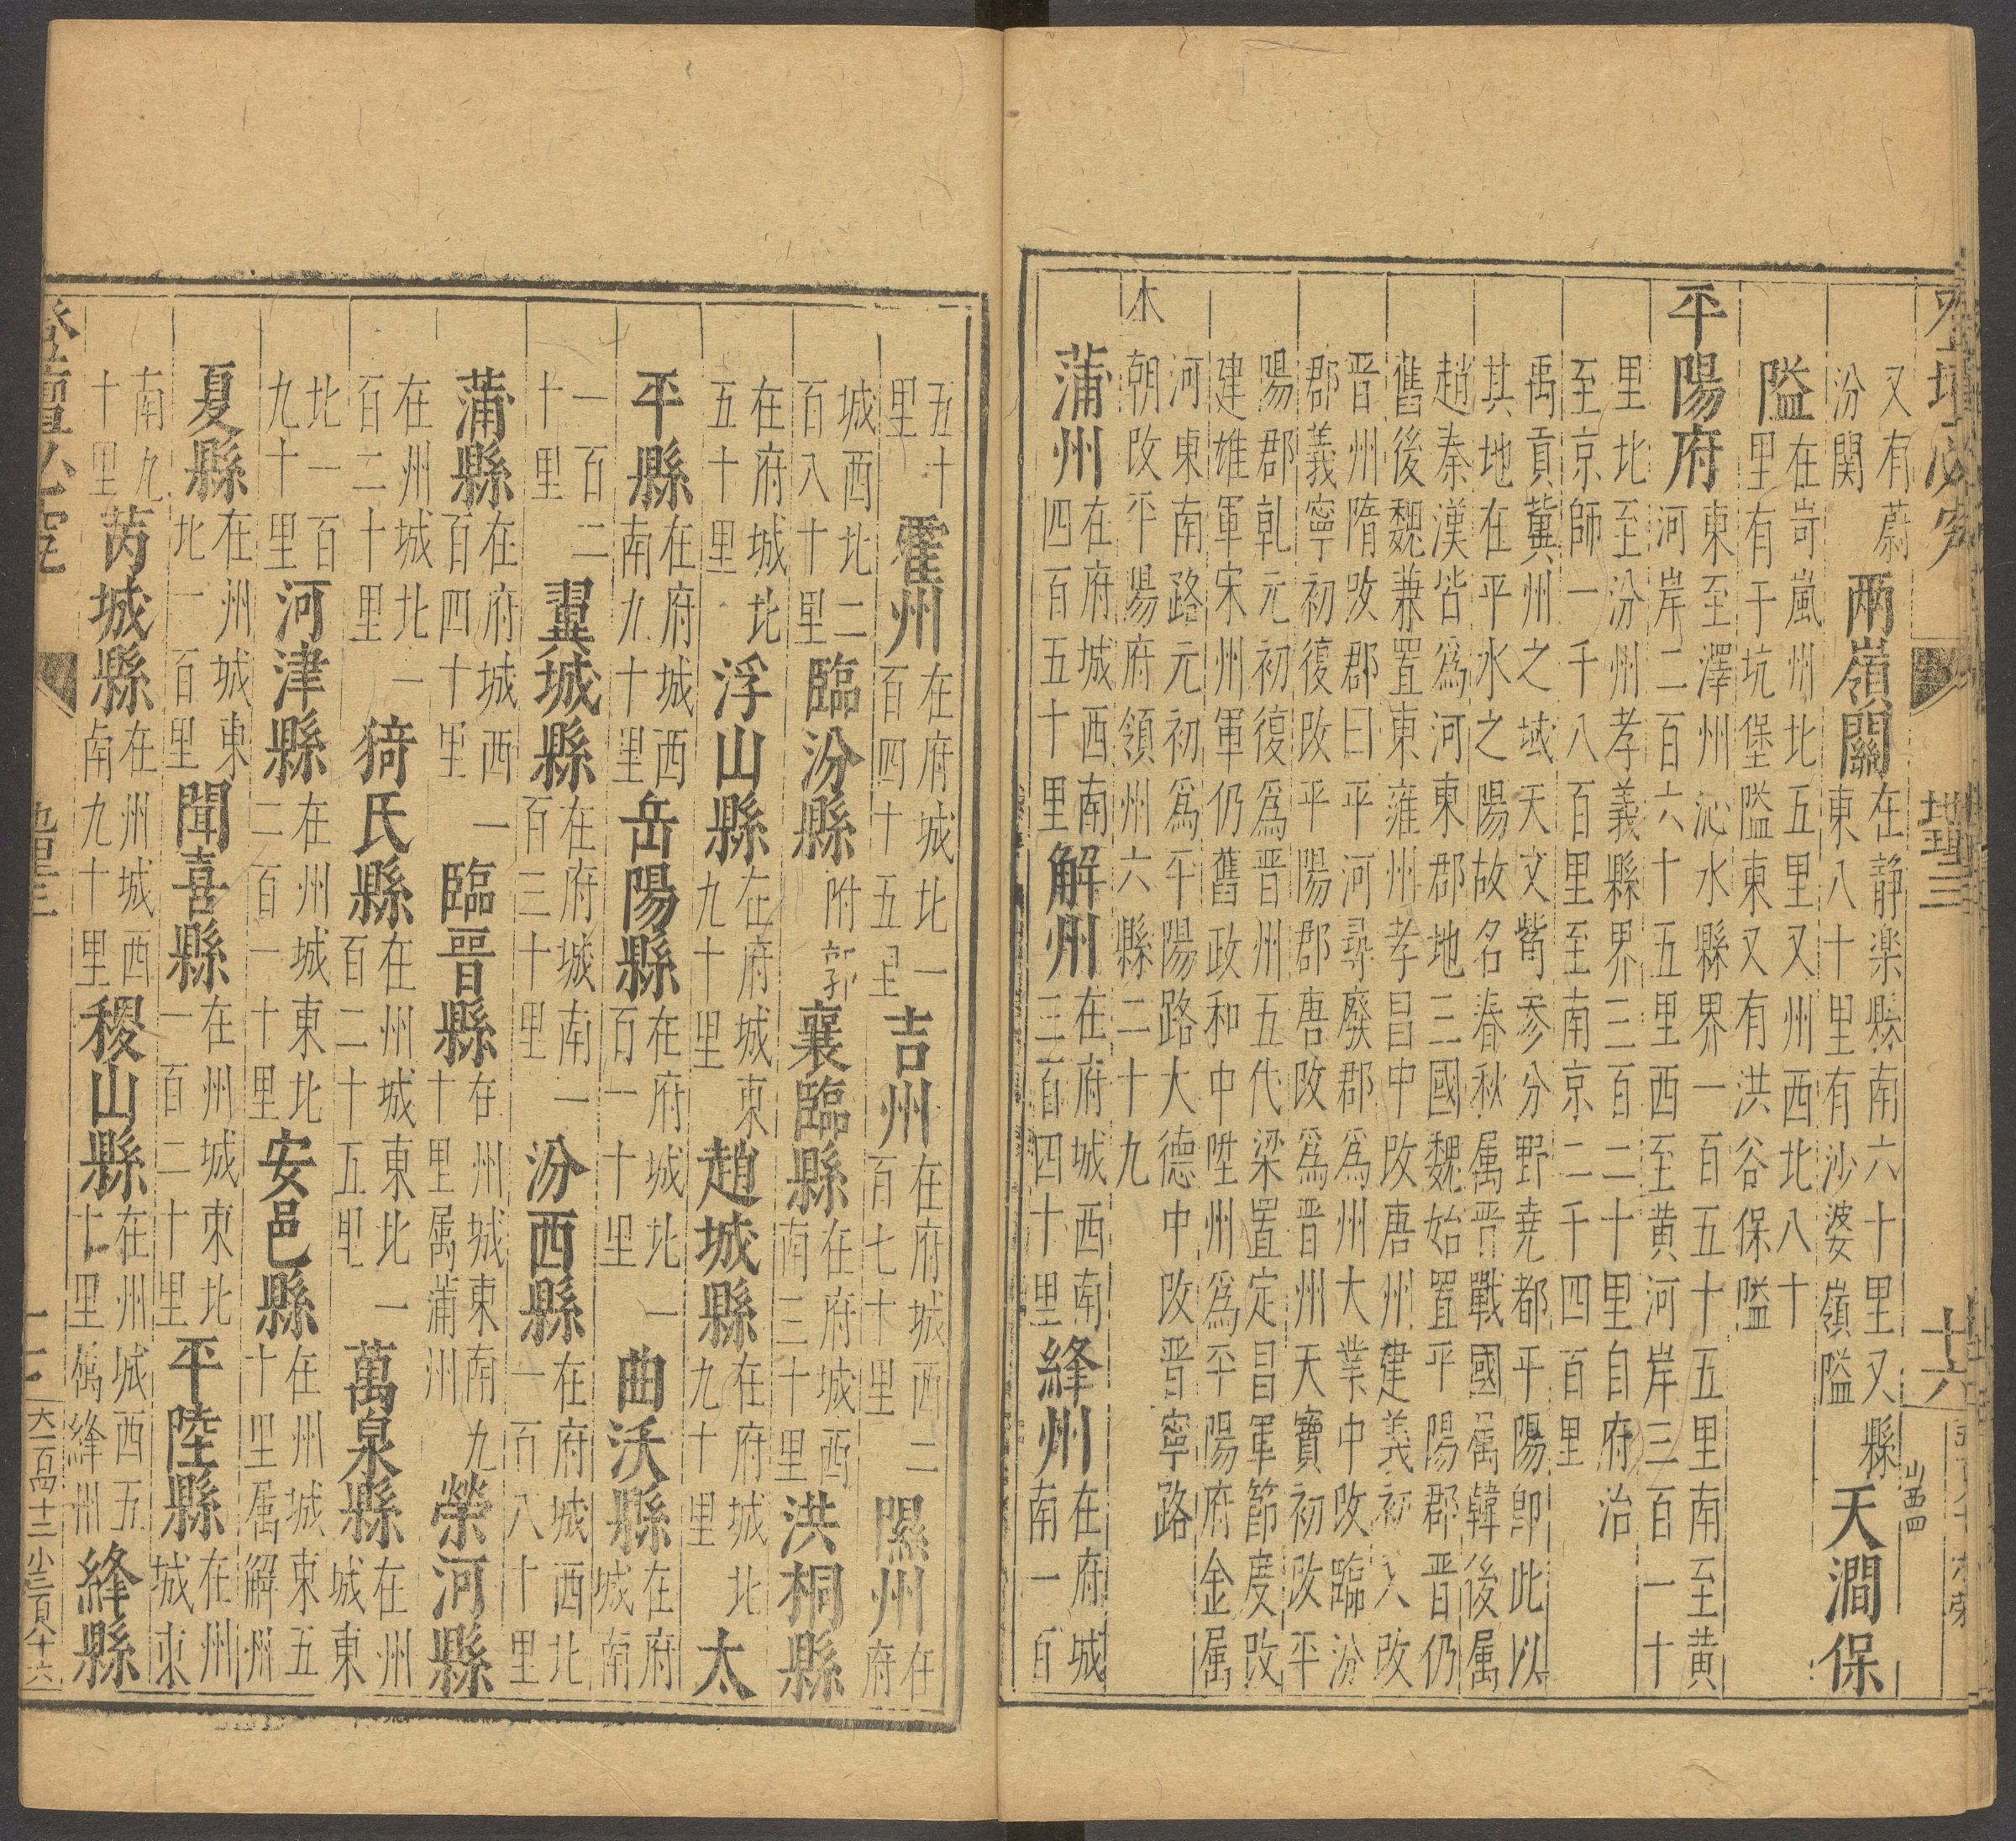 登壇必究 地理三 十六 山西四
又有蔚汾関 兩嶺關 在静楽縣南六十里又縣東八十里有沙婆嶺隘 天澗保
隘 在岢嵐州北五里又州西北八十里有于坑堡隘東又有洪谷保隘
平陽府 東至澤州沁水縣界一百五十五里南至黄河岸二百六十五里西至黄河岸三百一十
里北至汾州孝義縣界三百二十里自府治至京師一千八百里至南京二千四百里
禹貢冀州之域天文觜参分野尭都平陽即此以其地在平水之陽故名春秋属晋戰國属韓後属
趙秦漢皆爲河東郡地三國魏始置平陽郡晋仍舊後魏兼置東雍州孝昌中改唐州建義初入改
晋州隋改郡曰平河尋廢郡爲州大業中改臨汾郡義寧初復改平陽郡唐改爲晋州天寶初改平
陽郡乹元初復爲晋州五代梁置定昌軍節度改建雄軍宋州軍仍舊政和中陞州爲平陽府金属
河東南路元初爲平陽路大德中改晋寧路本朝改平陽府領州六縣二十九
蒲州 在府城西南四百五十里 解州 在府城西南三百四十里 絳州 在府城南一百
五十里 霍州 在府城北一百四十五里 吉州 在府城西二百七十里 隰州 在府
城西北二百八十里 臨汾縣 附郭 襄臨縣 在府城西南三十里 洪桐縣
在府城北五十里 浮山縣 在府城東九十里 趙城縣 在府城北九十里 太
平縣 在府城西南九十里 岳陽縣 在府城北一百一十里 曲沃縣 在府城南
一百二十里 翼城縣 在府城南一百三十里 汾西縣 在府城西北一百八十里
蒲縣 在府城西一百四十里 臨晋縣 在州城東南九十里属蒲州 榮河縣
在州城北一百二十里 猗氏縣 在州城東北一百二十五里 萬泉縣 在州城東
北一百九十里 河津縣 在州城東北二百一十里 安邑縣 在州城東五十里属解州
夏縣 在州城東北一百里 聞喜縣 在州城東北一百二十里 平陸縣 在州城東
南九十里 芮城縣 在州城西南九十里 稷山縣 在州城西五十里属絳州 絳縣
登壇必究 地理三 大一百四十二 小三百八十六